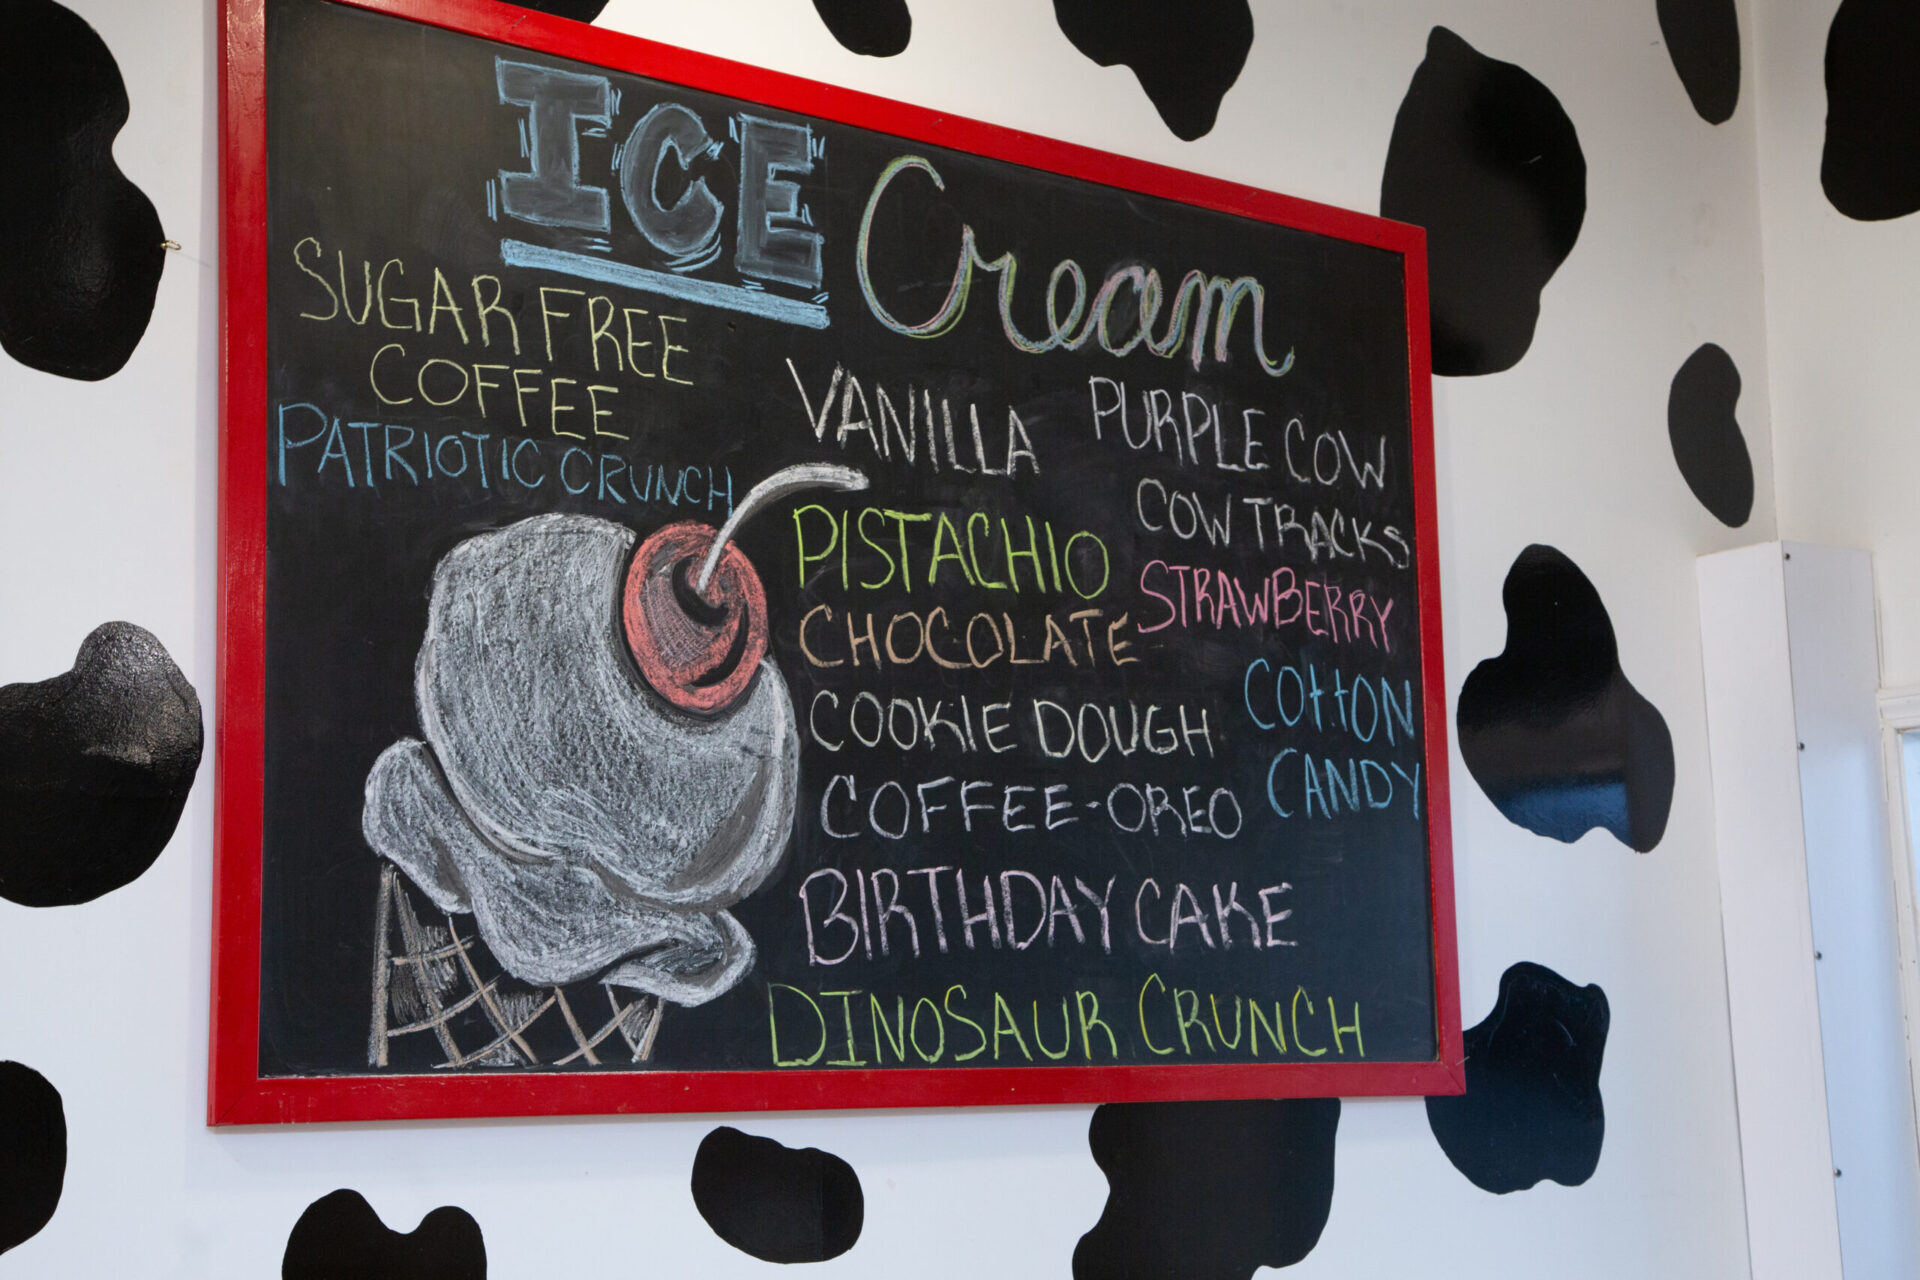 ICE Cream
SUGAR FREE
COFFEE
PATRIOTIC CRUNCH
VANILLA
PISTACHIO
CHOCOLATE
COOKIE DOUGH
COFFEE-OREO
BIRTHDAY CAKE
DINOSAUR CRUNCH
PURPLE COW
COW TRACKS
STRAWBERRY
COttON
CANDY